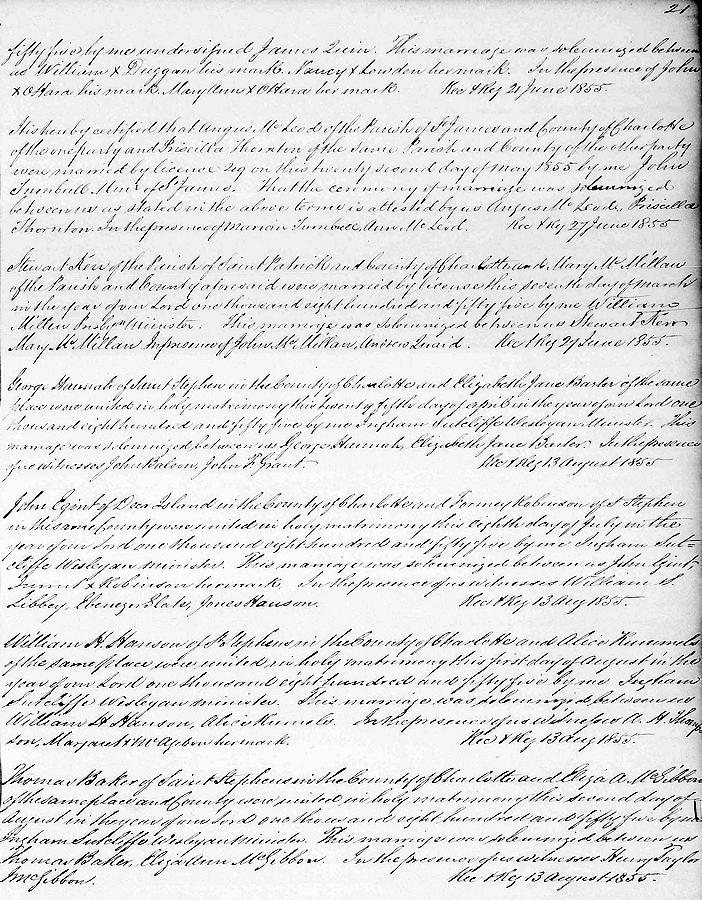 21
fifty five by me undersigned James Quin. This marriage was solemnized between
us William X Duggan his mark. Nancy X Lowden her mark. In the presence of John
X O'Hara his mark. Mary Ann X O'Hara her mark. Rec & Reg 21 June 1855.
It is hereby certified that Angus Mc Leod of the Parish of St James and County of Charlotte
of the one party and Priscilla Thornton of the same Parish and County of the other party
were married by license on this twenty second day of may 1855 by me John
Turnbull Minr of St James. That the ceremony of marriage was solemnized
between us as stated in the above terms is attested by us Angus Mc Leod, Priscilla
Thornton. In the presence of Marion Turnbull, Ann Mc Leod. Rec & Reg 27 June 1855
Stewart Kerr of the Parish of Saint Patrick and County of Charlotte, and Mary Mc Millan
of the Parish and County aforesaid were married by license this seventh day of march
in the year of our Lord one thousand eight hundred and fifty five by me William
Millen Presbyn Minister. This marriage was solemnized between us Stewart Kerr
Mary Mc Millan In presence of John Mc Millan, Andrew Quaid. Rec & Reg 27 June 1855.
George Hannah of Saint Stephen in the County of Charlotte and Elizabeth Jane Barter of the same
place were united in holy matrimony this twenty fifth day of april in the year of our Lord one
thousand eight hundred and fifty five by me Ingham Sutcliffe Wesleyan Minister. This
marriage was solemnized between us George Hannah, Elizabeth Jane Barter. In the presence
of us witnesses John Balcom, John F Grant. Rec & Reg 13 August 1855
John Egint of Deer Island in the County of Charlotte and Robinson of St Stephen
in the same County were united in holy matrimony this eighth day of July in the
year of our Lord one thousand eight hundred and fifty five by me Ingham Sut-
cliffe Wesleyan minister. This marriage was solemnized between us John Gint
X Robinson her mark. In the presence of us witnesses William S
Libbey, Ebenezer Slate, Jones Hanson. Rec & Reg 13 Aug 1855.
William H. Hanson of St Stephens in the County of Charlotte and Alice Kummels
of the same place were united in holy matrimony this first day of August in the
year of our Lord one thousand eight hundred and fifty five by me Ingham
Sutcliffe Wesleyan minister. This marriage was solemnized between us
William H Hanson, Alice Kumels. In the presence of us witnesses A. H. Thomp
son, Margaret X her mark. Rec & Reg 13 Aug 1855.
Thomas Baker of Saint Stephens in the County of Charlotte and Eliza A. McGibbon
of the same place and County were united in holy matrimony this second day of
August in the year of our Lord one thousand eight hundred and fifty five by me
Ingham Sutcliffe Wesleyan Minister. This marriage was solemnized between us
Thomas Baker, Eliza Ann McGibbon. In the presence of us witnesses Henry Taylor
J McGibbon. Rec & Reg 13 August 1855.